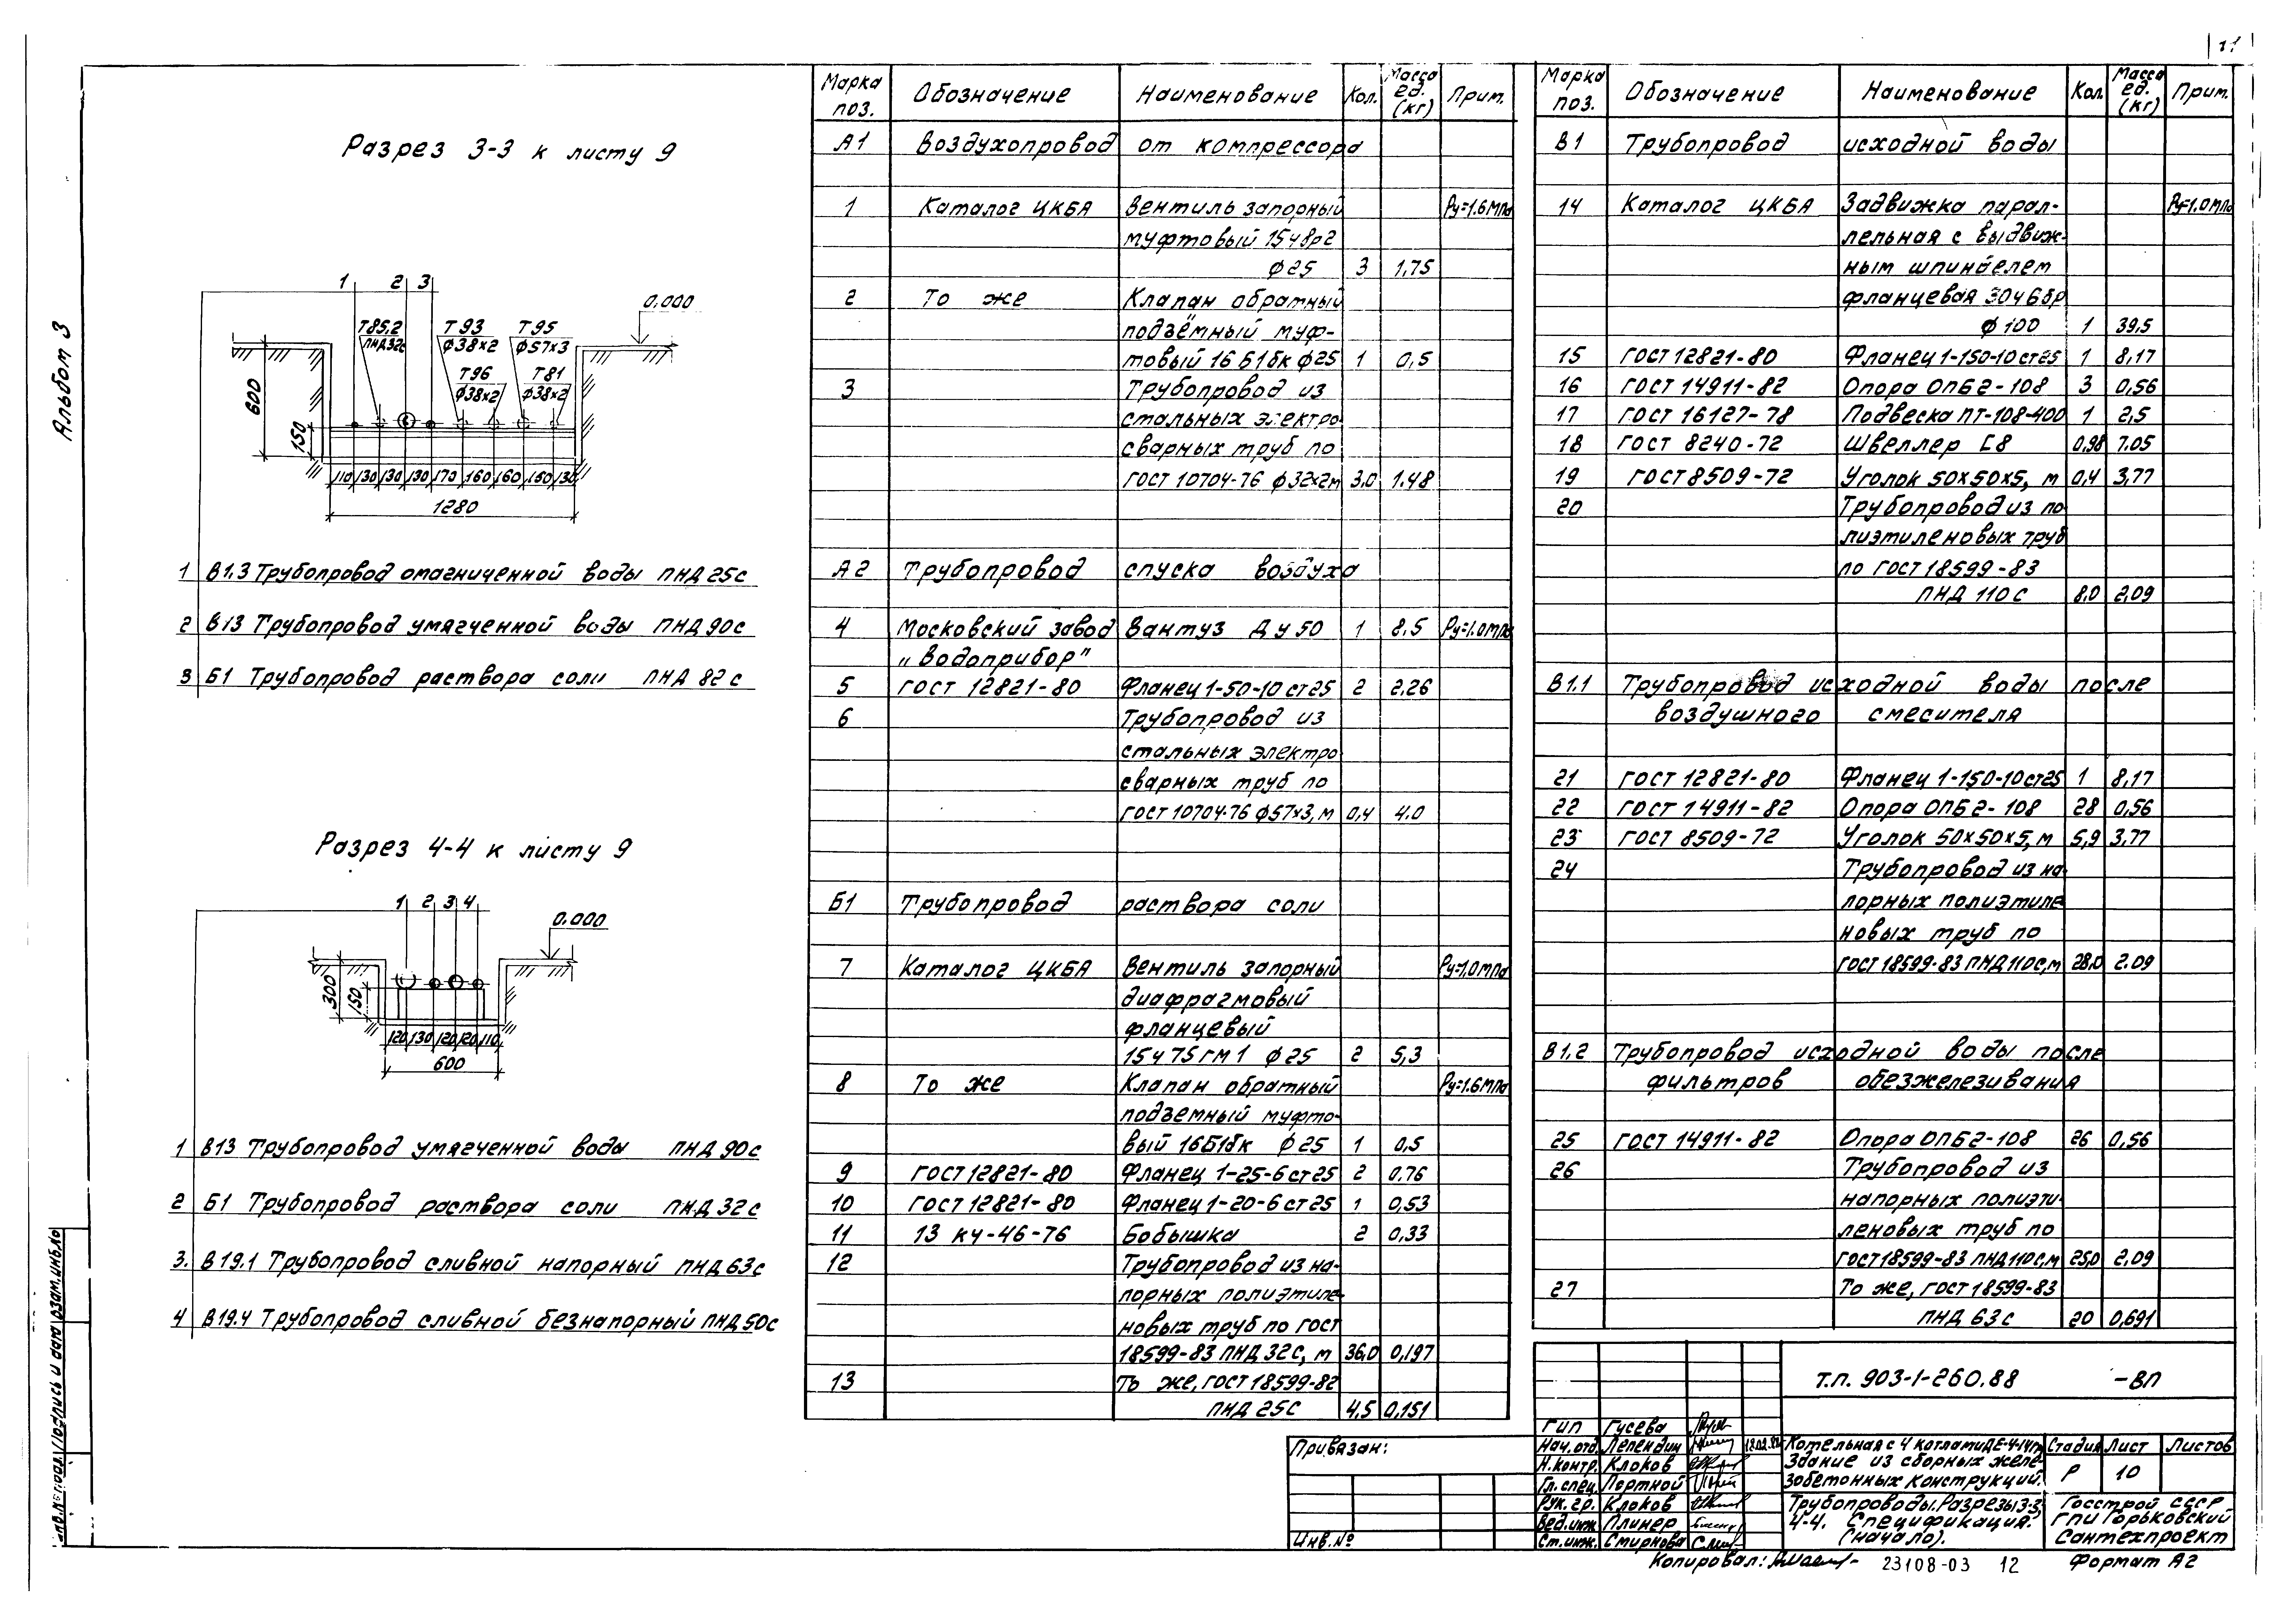 11
Альбом 3
Разрез 3-3 к листу 9
1 2 3
0.000
Т85.2 Т93 Т95
ПНД32с ф38×2 ф57×3
Т96 Т81
ф38×2 ф38×2
600
150
110 130 130 130 170 160 160 150 130
1280
1 В1.3 Трубопровод омагниченной воды ПНД 25с
2 В13 Трубопровод умягченной воды ПНД 90с
3 Б1 Трубопровод раствора соли ПНД 82с
Разрез 4-4 к листу 9
1 2 3 4
0.000
300
150
120 130 120 120 110
600
1 В13 Трубопровод умягченной воды ПНД 90с
2 Б1 Трубопровод раствора соли ПНД 32с
3. В19.1 Трубопровод сливной напорный ПНД 63с
4 В19.4 Трубопровод сливной безнапорный ПНД 50с
Марка поз. Обозначение Наименование Кол. Масса ед. (кг) Прим.
А1 Воздухопровод от компрессора
1 Каталог ЦКБА Вентиль запорный Ру=1.6МПа
муфтовый 15ч8р2
ф25 3 1,75
2 То же Клапан обратный
подзёмный муф-
товый 16Б1бк ф25 1 0,5
3 Трубопровод из
стальных электро
сварных труб по
ГОСТ 10704-76 ф32×2м 3,0 1.48
А2 Трубопровод спуска воздуха
4 Московский завод Вантуз Ду 50 1 8,5 Ру=1.0МПа
„Водоприбор"
5 ГОСТ 12821-80 Фланец 1-50-10 ст25 2 2,26
6 Трубопровод из
стальных электро
сварных труб по
ГОСТ 10704-76 ф57×3, м 0,4 4.0
Б1 Трубопровод раствора соли
7 Каталог ЦКБА Вентиль запорный Ру=1,0МПа
диафрагмовый
фланцевый
15ч75гм1 ф25 2 5,3
8 То же Клапан обратный Ру=1.6МПа
подземный муфто-
вый 16Б1бк ф25 1 0,5
9 ГОСТ 12821-80 Фланец 1-25-6 ст25 2 0.76
10 ГОСТ 12821-80 Фланец 1-20-6 ст25 1 0,53
11 13 кч-46-76 Бобышка 2 0,33
12 Трубопровод из на-
порных полиэтиле-
новых труб по ГОСТ
18599-83 ПНД 32С, м 36,0 0,197
13 То же, ГОСТ 18599-82
ПНД 25С 4,5 0,151
Марка поз. Обозначение Наименование Кол. Масса ед. (кг) Прим.
В1 Трубопровод исходной воды
14 Каталог ЦКБА Задвижка парал- Ру=1.0МПа
лельная с выдвиж-
ным шпинделем
фланцевая 30ч6бр
ф100 1 39,5
15 ГОСТ 12821-80 Фланец 1-150-10 ст25 1 8,17
16 ГОСТ 14911-82 Опора ОПБ2-108 3 0,56
17 ГОСТ 16127-78 Подвеска ПТ-108-400 1 2,5
18 ГОСТ 8240-72 Швеллер С8 0,98 7.05
19 ГОСТ 8509-72 Уголок 50×50×5, м 0,4 3,77
20 Трубопровод из по
лиэтиленовых труб
по ГОСТ 18599-83
ПНД 110с 8.0 2.09
В1.1 Трубопровод исходной воды после
воздушного смесителя
21 ГОСТ 12821-80 Фланец 1-150-10 ст25 1 8,17
22 ГОСТ 14911-82 Опора ОПБ2-108 28 0,56
23 ГОСТ 8509-72 Уголок 50×50×5, м 5,9 3,77
24 Трубопровод из на-
порных полиэтиле
новых труб по
ГОСТ 18599-83 ПНД110С, м 28,0 2.09
В1.2 Трубопровод исходной воды после
фильтров обезжелезивания
25 ГОСТ 14911-82 Опора ОПБ2-108 26 0,56
26 Трубопровод из
напорных полиэти-
леновых труб по
ГОСТ 18599-83 ПНД110С, м 25,0 2,09
27 То же, ГОСТ 18599-83
ПНД 63с 20 0,691
Т.п. 903-1-260.88 -ВП
Привязан:
Инв. №
ГИП Гусева
Нач. отд. Лепендин
Н.контр. Клоков
Гл. спец. Портной
Рук. гр. Клоков
Вед. инж. Плинер
Ст. инж. Смирнова
Котельная с 4 котлами ДЕ-4-14гм
Здание из сборных желе-
зобетонных конструкций.
Стадия Лист Листов
Р 10
Трубопроводы. Разрезы 3-3,
4-4. Спецификация.
(начало).
Госстрой СССР
ГПИ Горьковский
Сантехпроект
Копировал: 23108-03 12 Формат А2
Инв.№ подл. Подпись и дата Взам.инв.№